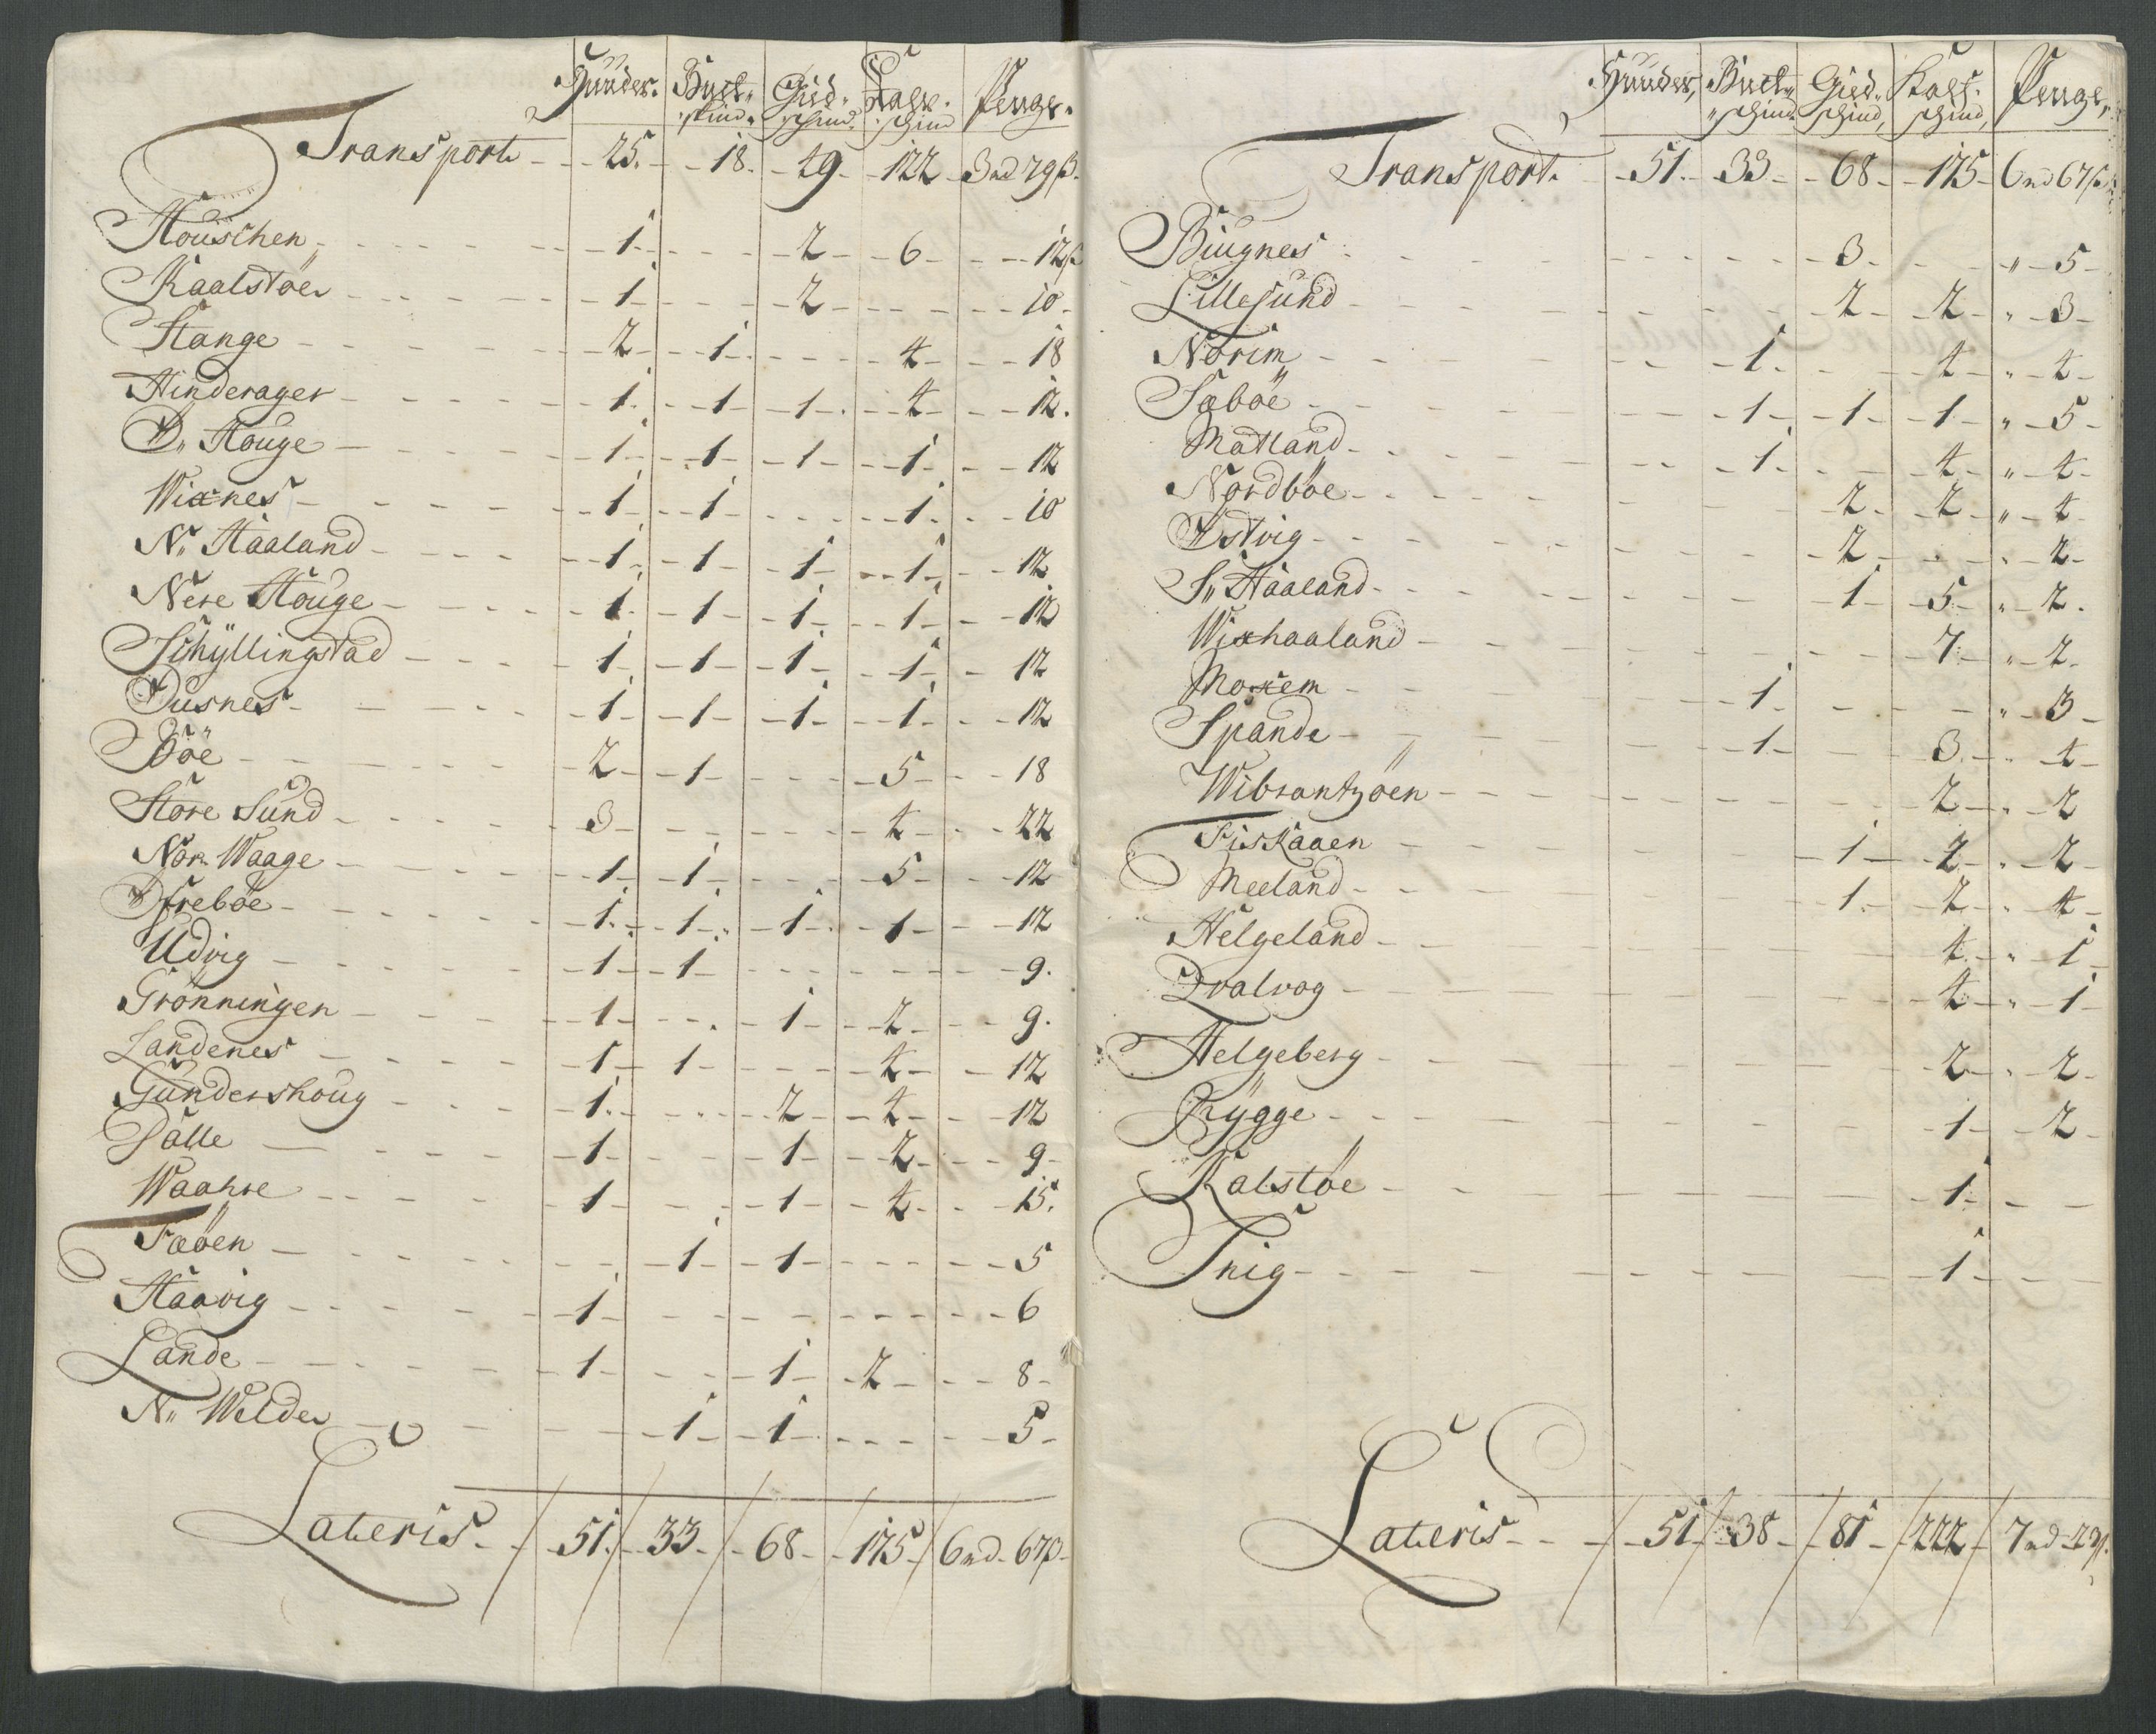 Huuder. Buck- Gied- Kalf- Penge.
skind. schind. schind
Transport 25. 18. 49 122 3 rd 79 β.
Houschen 1 2 6 12 β
Kaalstøe 1 2 10
Stange 2 1 4 18
Hinderager 1 1 1 4 12.
D. Houge 1 1 1 1 12
Wixnes 1 1 1 10
N. Haaland 1 1 1 1 12
Nere Houge 1 1 1 1 12
Schÿllingstad 1 1 1 1 12
Dusnes 1 1 1 1 12
Böe 2 1 5 18
Store Sund 3 4 22
Nor Waage 1 1 5 12
Øfreböe 1 1 1 1 12
Udvig 1 1 9.
Grönningen 1 1 2 9.
Sandenes 1 1 4 12
Gundershoug 1 2 4 12
Sålle 1 1 2 9
Waahre 1 1 4 15.
Fæöen 1 1 5
Haavig 1 6
Lande 1 1 2 8
N. Welde 1 1 5
Lateris 51 33 68 175 6 rd 67 β
Huuder, Buck- Gied- Kalf- Penge,
schind schind, schind,
Transport. 51. 33 68 175 6 rd 67 β
Biugnes 3 " 5
Lillesund 2 2 " 3
Norim 1 4 " 4
Sæböe 1 1 1 " 5
Matland 1 4 " 4
Nordböe 2 2 " 4
Østvig 2 " 2
S. Haaland 1 5 " 2.
Wixhaaland 7 " 2
Moxem 1 " 3
Spande 1 3 " 4
Wibrantzöen 2 " 2
Fiskaaen 1 2 " 2
Meeland 1 2 " 4
Helgeland 4 " 1
Dvalvog 4 " 1
Helgeberg 2 " 2
Rÿgge 1 2
Kalstöe 1
Snig 1
Lateris 51 38 81 222 7 rd 29 β.